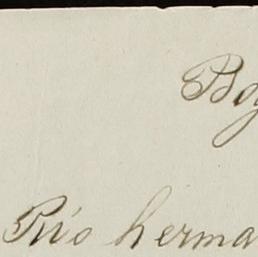 Bog
Rio herma